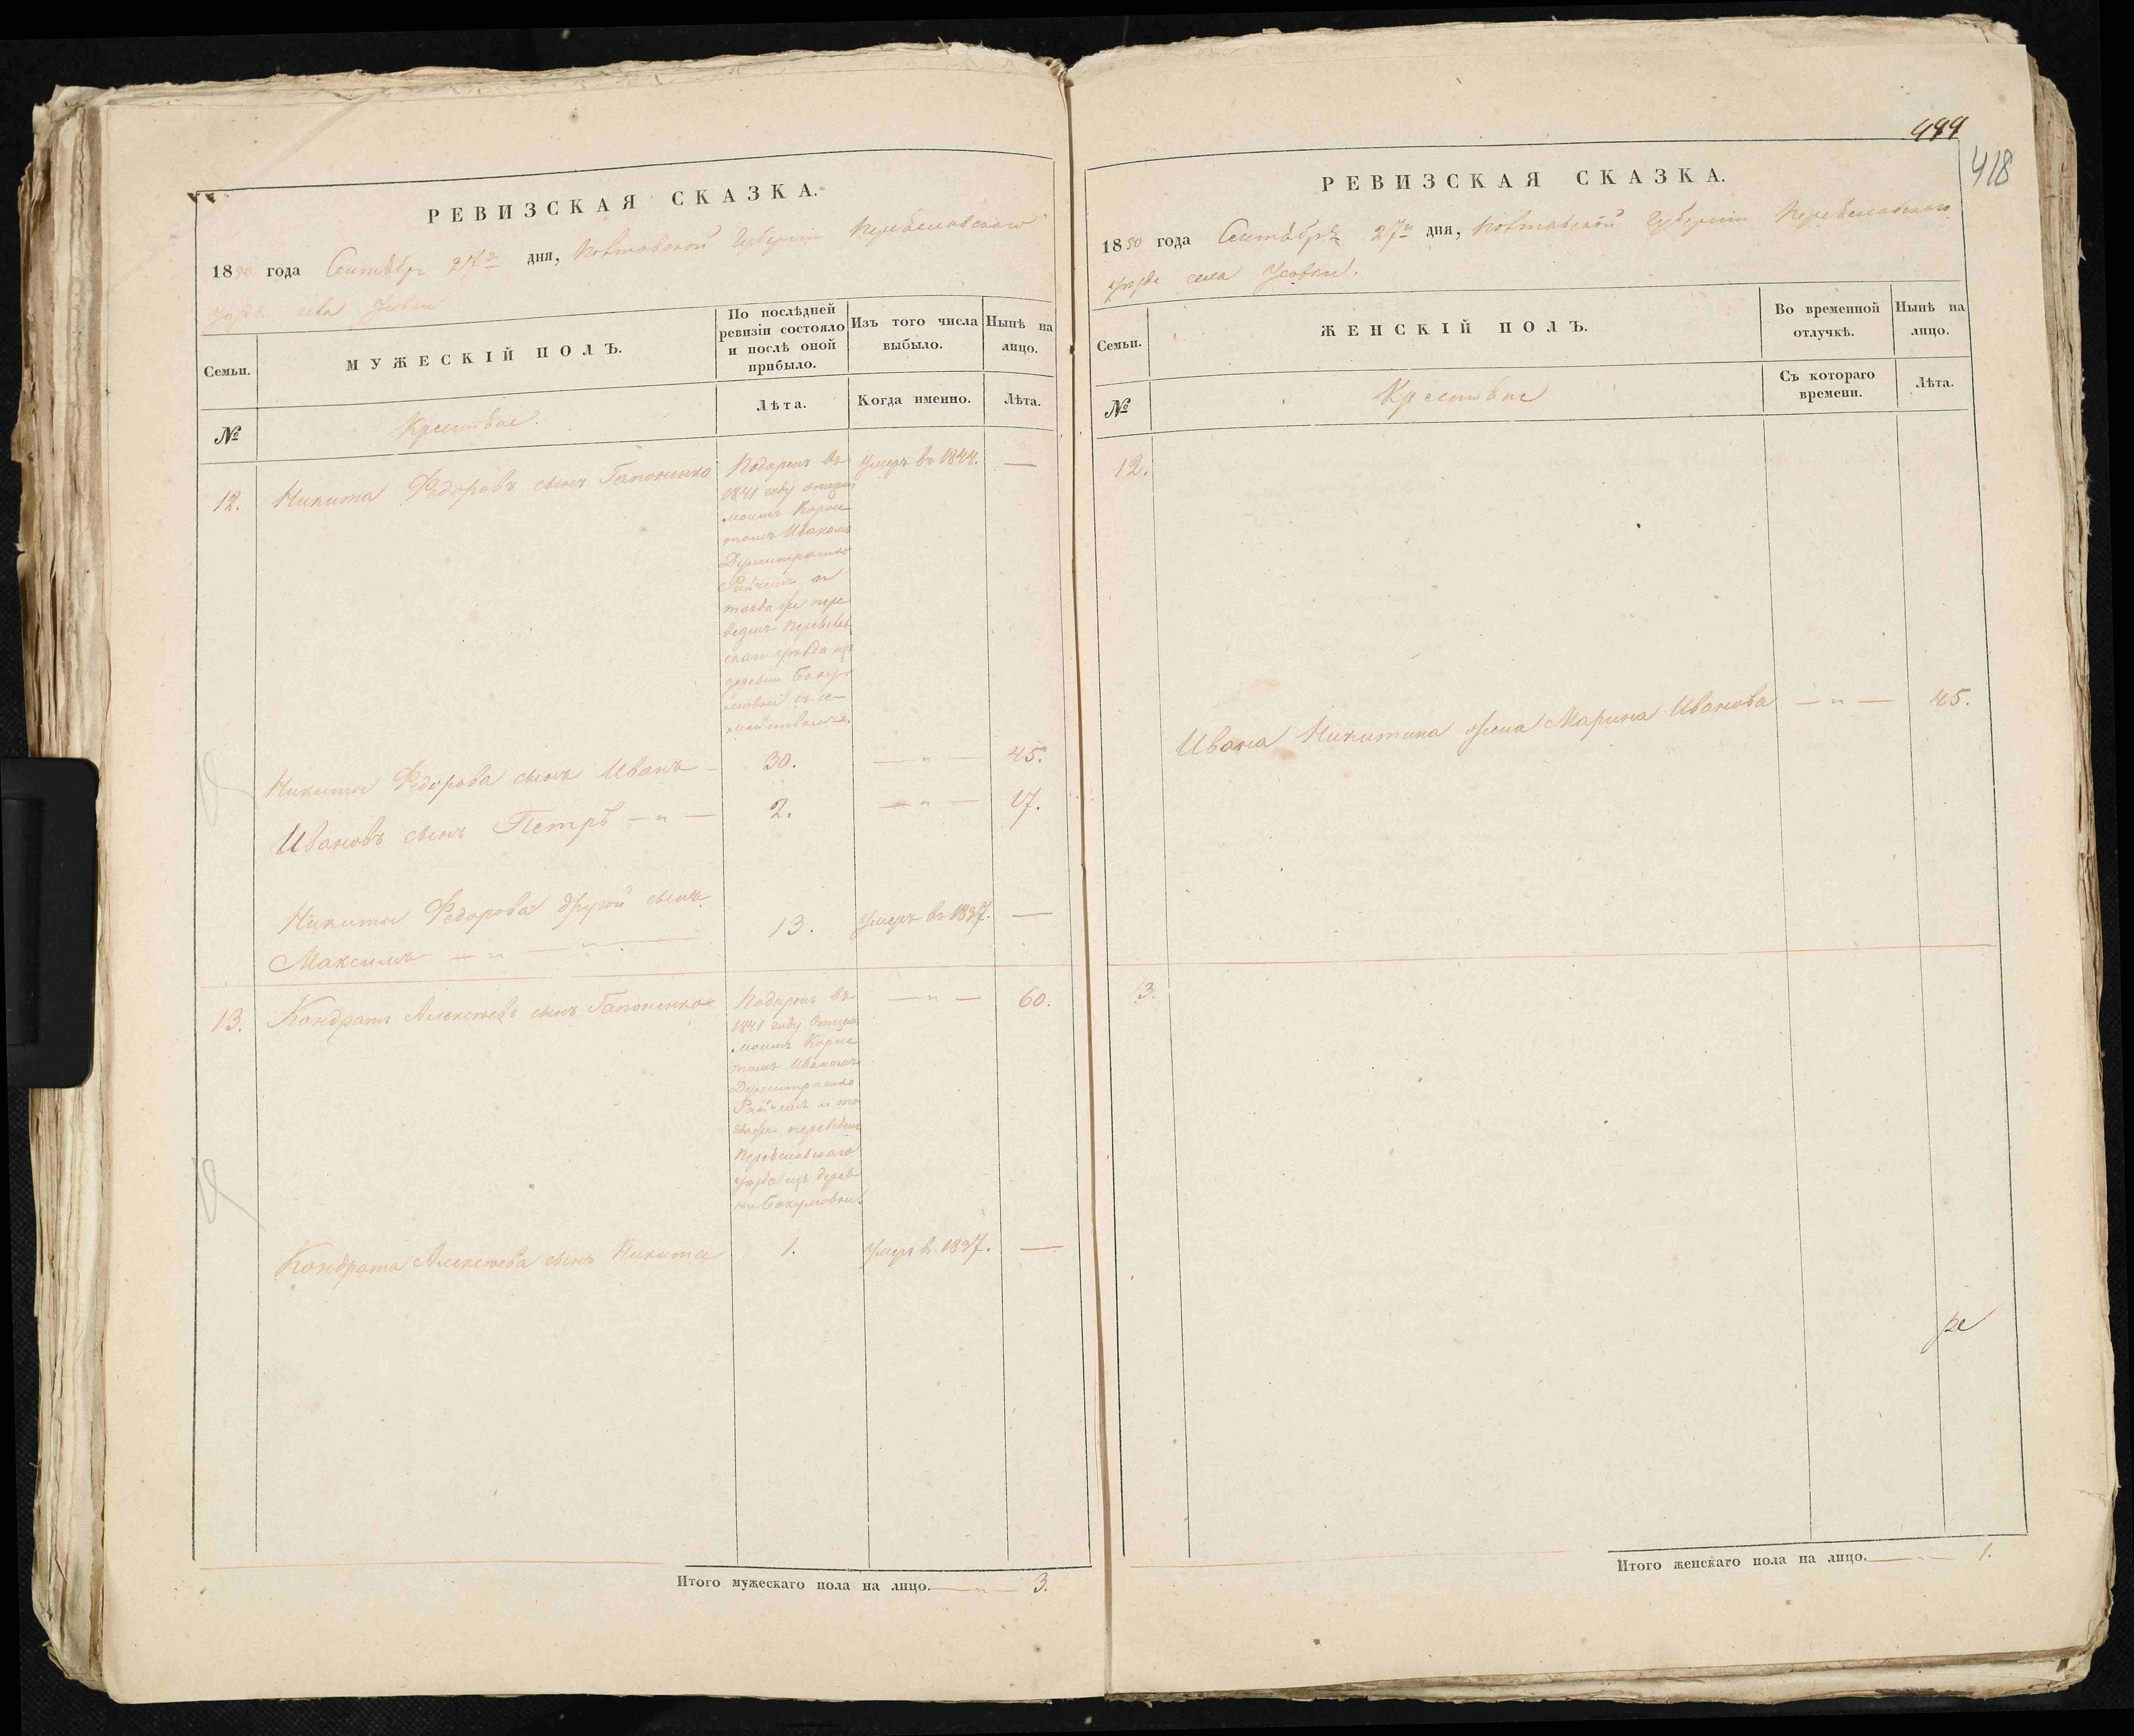 РЕВИЗСКАЯ СКАЗКА.
1850 года Сентября 27го дня, Полтавской Губернии Переяславского
уезда села Усовки
Семьи.
МУЖЕСКІЙ ПОЛЪ.
По послѣдней
ревизіи состояло
и послѣ оной
прибыло.
Изъ того числа
выбыло.
Нынѣ на
лицо.
№
Крестьяне.
Лѣта.
Когда именно.
Лѣта.
12. Никита Федоровъ сынъ Гапоненко
Подаренъ въ
1841 году
моимъ Корне
томъ Иваномъ
Думитрашко
Райчемъ и
тогда же пере
веденъ Переяслав
скаго уѣзда изъ
деревни Баку
мовки съ се
мействомъ.
Умеръ въ 1844. —
Никиты Федорова сынъ Иванъ 30. — „ — 45.
Ивановъ сынъ Петръ — „ — 2. — „ — 17.
Никиты Федорова другой сынъ
Максимъ — „ — „ — 13. Умеръ въ 1837. —
13. Кондратъ Алексѣевъ сынъ Гапоненко
Подаренъ въ
1841 году
моимъ Корне
томъ Иваномъ
Думитрашко
Райчемъ и то
гда же переведенъ
Переяславскаго
уѣзда изъ дерев
ни Бакумовки.
— „ — 60.
Кондрата Алексѣева сынъ Никита 1. Умеръ въ 1837. —
Итого мужескаго пола на лицо. — „ — 3.
499
418
РЕВИЗСКАЯ СКАЗКА.
1850 года Сентября 27го дня, Полтавской Губернии Переяславского
уезда села Усовки.
Семьи.
ЖЕНСКІЙ ПОЛЪ.
Во временной
отлучкѣ.
Нынѣ на
лицо.
№
Крестьяне
Съ котораго
времени.
Лѣта.
12.
Ивана Никитина жена Марина Иванова — „ — 45.
13.
Итого женскаго пола на лицо. — „ — 1.